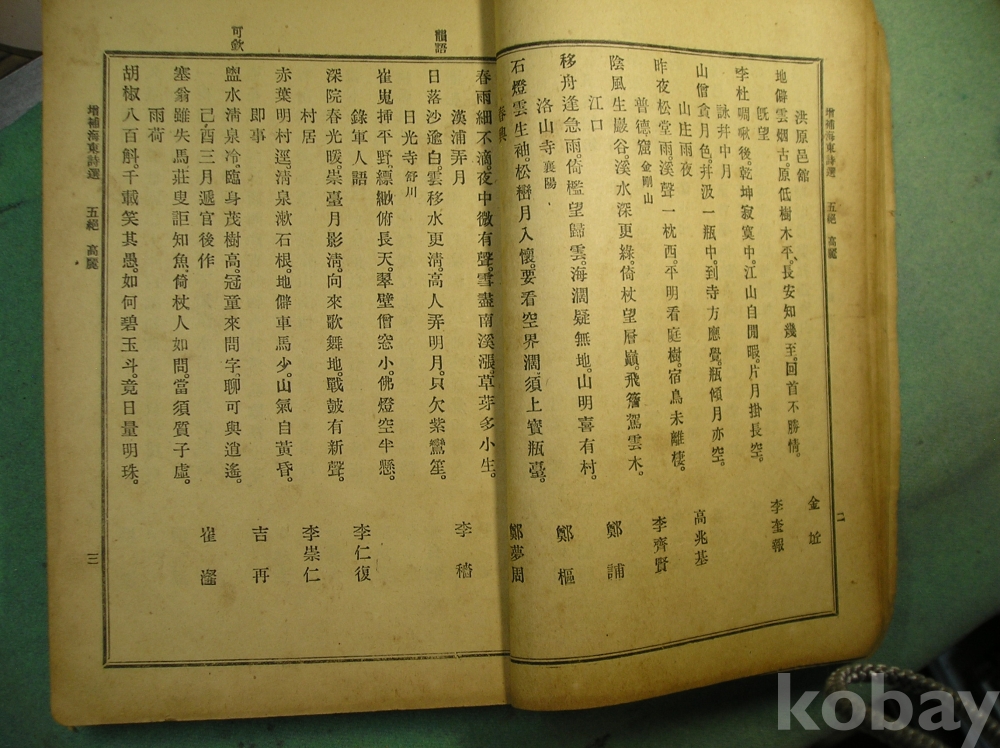 增補海東詩選 五絕 高麗 二
洪原邑館 金 近
地僻雲烟古。原低樹木平。長安知幾至。回首不勝情。
旣望 李奎報
李杜啁啾後。乾坤寂寞中。江山自閒暇。片月掛長空。
詠井中月
山僧貪月色。幷汲一瓶中。到寺方應覺。瓶傾月亦空。
山庄雨夜 高兆基
昨夜松堂雨。溪聲一枕西。平明看庭樹。宿鳥未離棲。
普德窟 金剛山 李齊賢
陰風生巖谷。溪水深更綠。倚杖望層巓。飛簷駕雲木。
江口 鄭 誧
移舟逢急雨。倚檻望歸雲。海濶疑無地。山明喜有村。
洛山寺 襄陽 鄭 樞
石燈雲生袖。松巒月入懷。要看空界濶。須上寶瓶臺。
春興 鄭夢周
春雨細不滴。夜中微有聲。雪盡南溪漲。草芽多小生。
漢浦弄月 李 穡
日落沙逾白。雲移水更淸。高人弄明月。只欠紫鸞笙。
日光寺 舒川
崔嵬揷平野。縹緲俯長天。翠壁僧窓小。佛燈空半懸。
錄軍人語 李仁復
深院春光暖。崇臺月影淸。向來歌舞地。戰鼓有新聲。
村居 李崇仁
赤葉明村逕。淸泉漱石根。地僻車馬少。山氣自黃昏。
卽事 吉 再
盥水淸泉冷。臨身茂樹高。冠童來問字。聊可與逍遙。
己酉三月遞官後作 崔 瀣
塞翁雖失馬。莊叟詎知魚。倚杖人如問。當須質子虛。
雨荷
胡椒八百斛。千載笑其愚。如何碧玉斗。竟日量明珠。
增補海東詩選 五絕 高麗 三
可歛
kobay